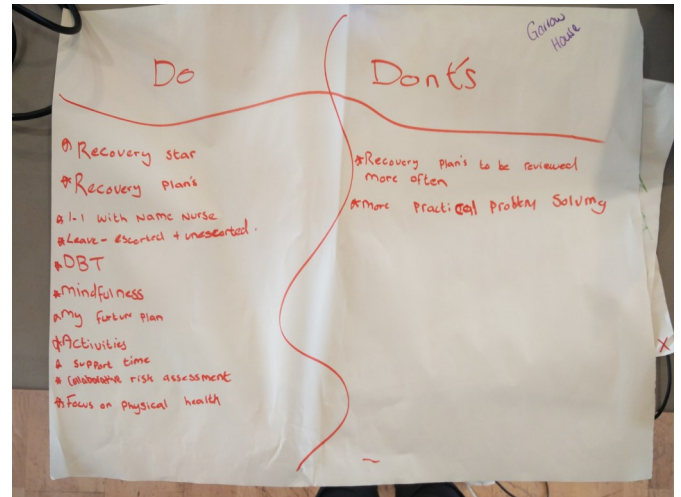 Garrow
House
Do
Dont's
* Recovery star
* Recovery Plan's
* 1-1 with Name Nurse
* Leave - escorted + unescorted.
* DBT
* mindfulness
* my future plan
* Activities
* support time
* Collaborative risk assessment
* Focus on physical health
* Recovery plan's to be reviewed
more often
* more practical problem Solving
X